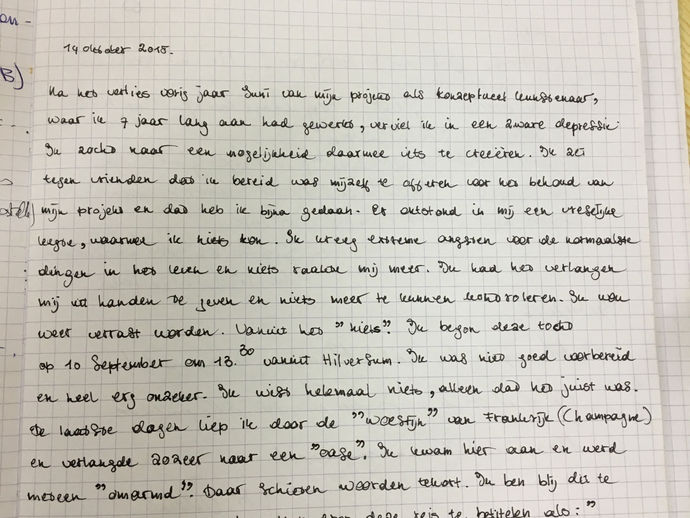 on -
B)
14 oktober 2015.
Na het verlies vorig jaar Juni van mijn projekt als konzeptueel kunstenaar,
waar ik 7 jaar lang aan had gewerkt, verviel ik in een zware depressie.
Ik zocht naar een mogelijkheid daarmee iets te creëren. Ik zei
tegen vrienden dat ik bereid was mijzelf te offeren voor het behoud van
mijn projekt en dat heb ik bijna gedaan. Er ontstond in mij een vreselijke
leegte, waarmee ik niets kon. Ik kreeg extreme angsten voor de normaalste
dingen in het leven en niets raakte mij meer. Ik had het verlangen
mij uit handen te geven en niets meer te kunnen kontroleren. Ik wou
weer verrast worden. Vanuit het "niets". Ik begon deze tocht
op 10 September om 13.30 vanuit Hilversum. Ik was niet goed voorbereid
en heel erg onzeker. Ik wist helemaal niets, alleen dat het juist was.
De laatste dagen liep ik door de "woestijn" van Frankrijk (Champagne)
en verlangde zozeer naar een "oase". Ik kwam hier aan en werd
meteen "omarmd". Daar schieten woorden tekort. Ik ben blij dit te
deze reis te betitelen als: "